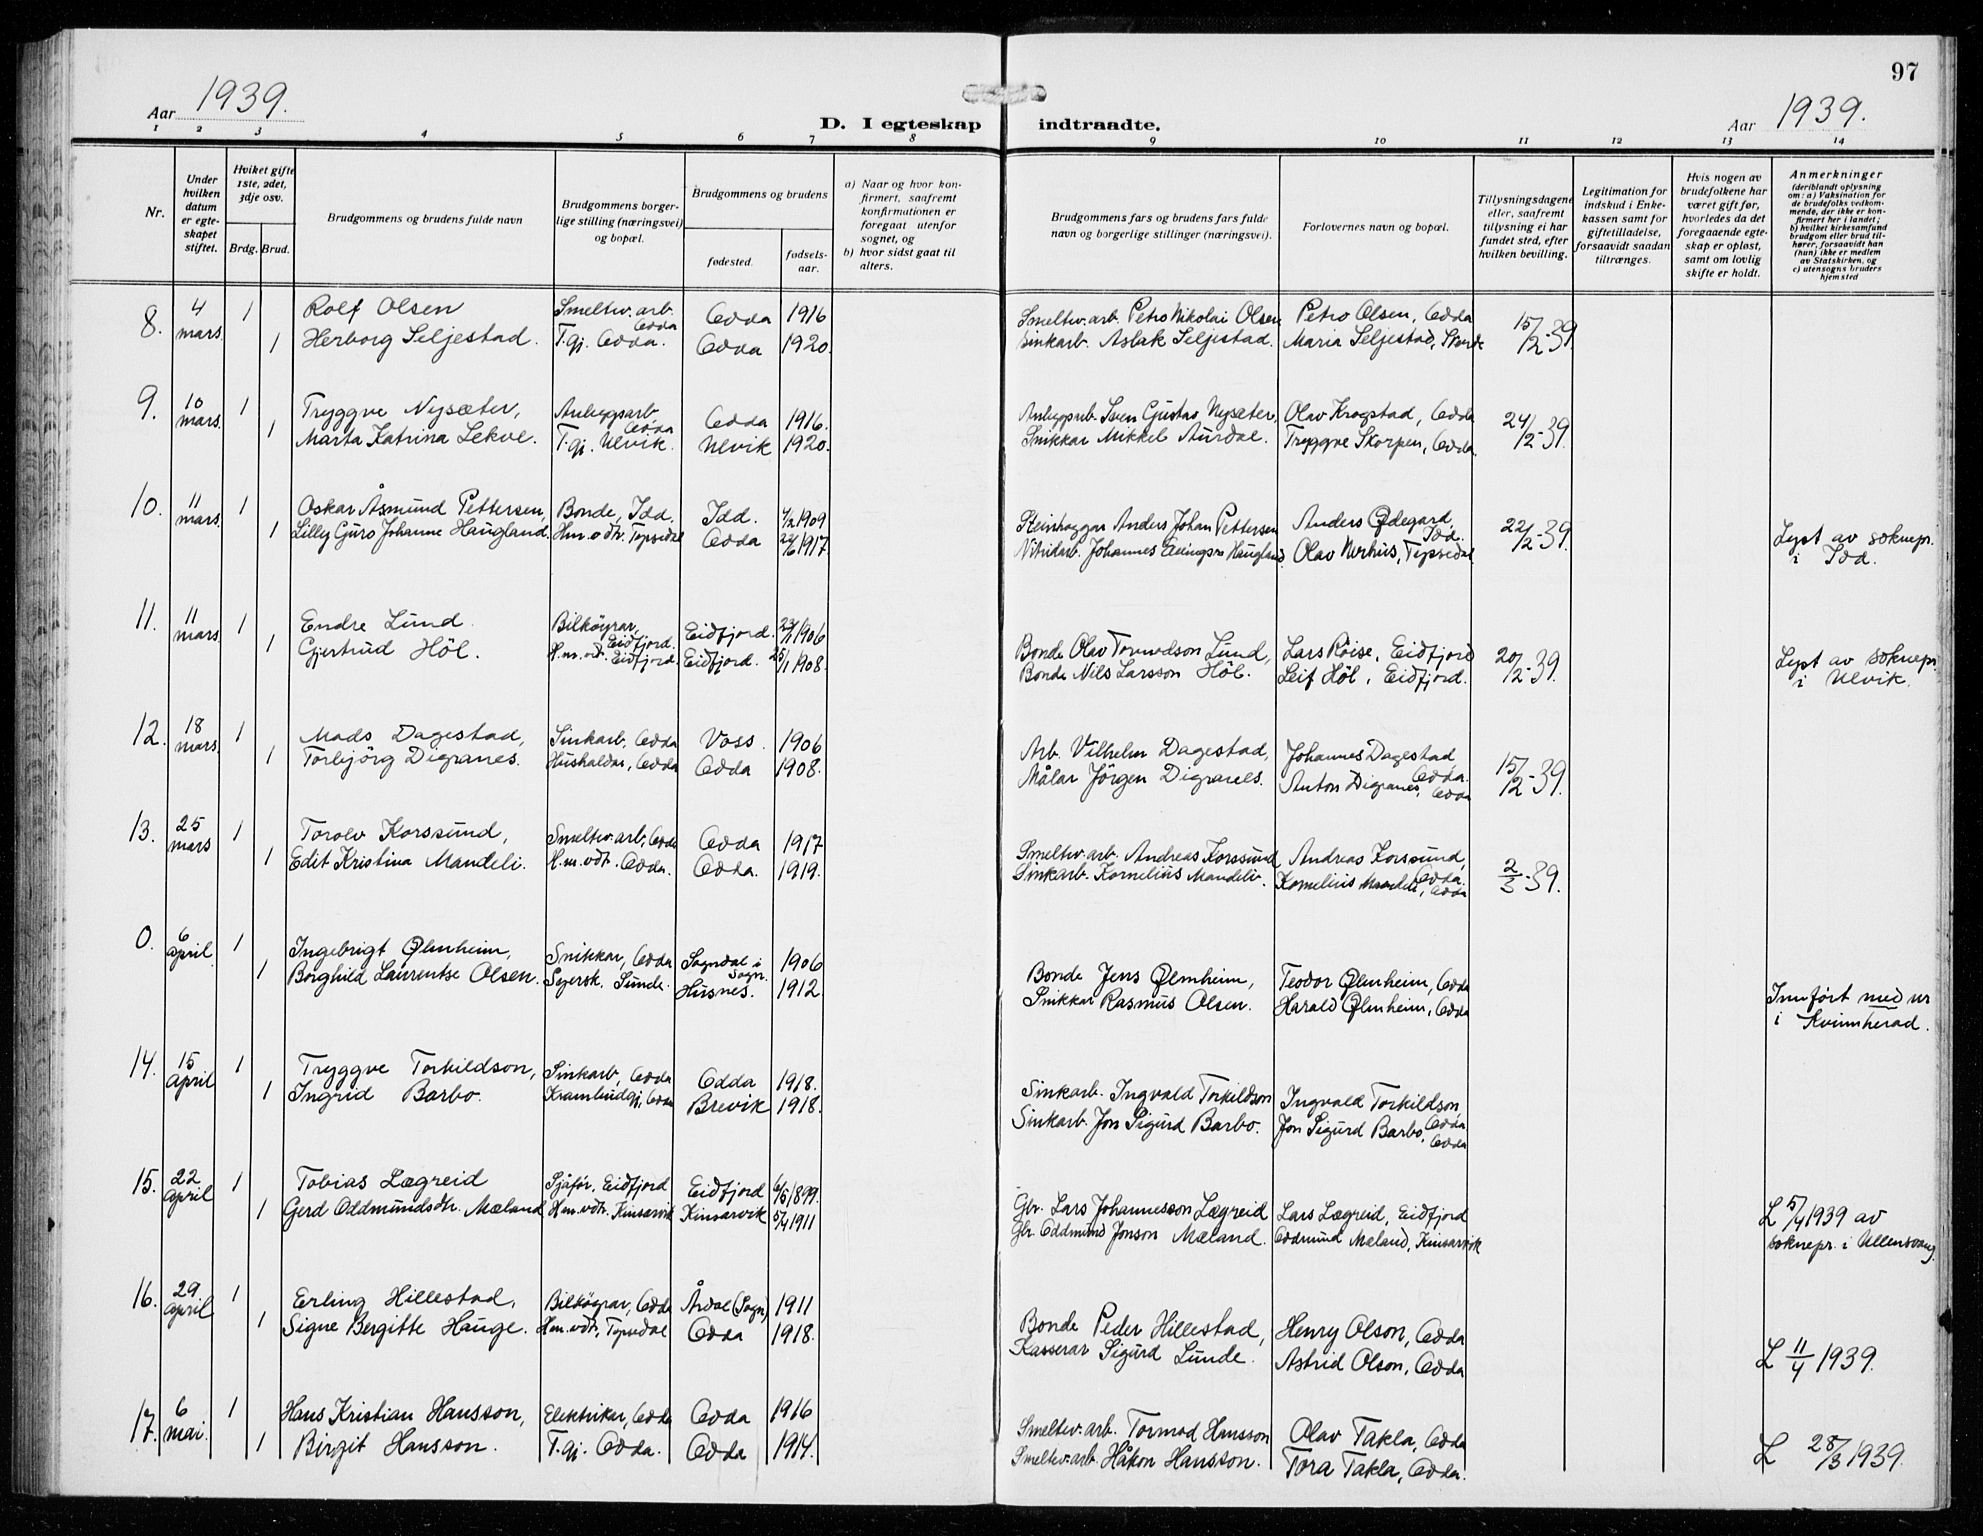 97
Aar 1939.
D. I egteskap indtraadte.
Aar 1939.
1 2 3 4 5 6 7 8 9 10 11 12 13 14
Nr.
Under hvilken datum er egte- skapet stiftet.
Hviket gifte 1ste, 2det, 3dje osv.
Brdg. Brud.
Brudgommens og brudens fulde navn
Brudgommens borger- lige stilling (næringsvei) og bopæl.
Brudgommens og brudens
fødested.
fødsels- aar.
a) Naar og hvor kon- firmert, saafremt konfirmationen er foregaat utenfor sognet, og
b) hvor sidst gaat til alters.
Brudgommens fars og brudens fars fulde navn og borgerlige stillinger (næringsvei).
Forlovernes navn og bopæl.
Tillysningsdagene eller, saafremt tillysning ei har fundet sted, efter hvilken bevilling.
Legitimation for indskud i Enke- kassen samt for giftetilladelse, forsaavidt saadan tiltrænges.
Hvis nogen av brudefolkene har været gift før, hvorledes da det foregaaende egte- skap er opløst, samt om lovlig skifte er holdt.
Anmerkninger (deriblandt oplysning om: a) Vaksination for de brudefolks vedkom- mende, der ikke er kon- firmert her i landet; b) hvilket kirkesamfund brudgom eller brud til- hører, forsaavidt han (hun) ikke er medlem av Statskirken, og c) utensogns bruders hjemsted
8. 4 mars 1 Rolf Olsen Smeltev. arb. Odda Odda 1916 Smeltev. arb. Petro Nikolai Olsen Petro Olsen, Odda 15/2-39.
1 Herborg Seljestad. T.gj. Odda. Odda 1920. Sinkarb. Aslak Seljestad. Maria Seljestad, Skarde
9. 10 mars. 1 Tryggve Nysæter, Anleggsarb Odda Odda 1916. Anleggsarb. Sven Gustav Nysæter, Olav Krogstad, Odda 24/2-39.
1 Marta Katrina Lekve. T.gj. Ulvik. Ulvik 1920. Snikkar Mikkel Aurdal. Tryggve Skorpen, Odda.
10. 11 mars. 1 Oskar Åsmund Pettersen, Bonde, Idd. Idd. 4/2 1909 Steinhoggar Anders Johan Pettersen Anders Ødegard, Idd. 22/2-39.
1 Lilly Guro Johanne Haugland. Hm. vdtr. Tyssedal Odda 1917. Nitridarb. Johannes Haugland. Olav Nerhus, Tyssedal. Lyst av soknepr. i Idd.
11. 11 mars. 1 Endre Lund. Bilkøyrar, Eidfjord. Eidfjord. 1906 Bonde Olav Tormodson Lund, Lars Røise, Eidfjord 20/2-39.
1 Gjertrud Høl. H.m. vdt. Eidfjord. Eidfjord. 25/1 1908. Bonde Nils Larsson Høl. Leif Høl, Eidfjord. Lyst av soknepr. i Ulvik.
12. 18 mars. 1 Mads Dagestad, Sinkarb, Odda Voss. 1906 Arb. Vilhelm Dagestad, Johannes Dagestad, Odda. 15/2-39.
1 Torbjörg Digranes. Hushaldar, Odda Odda 1908. Målar Jörgen Digranes. Anton Digranes, Odda
13. 25 mars 1 Torolv Korssund, Smeltev. arb, Odda Odda 1917 Smeltev. arb. Andreas Korssund Andreas Korssund, Odda. 2/3-39.
1 Edit Kristina Mandeli. H.m. vdt. Odda. Odda. 1919. Sinkarb. Kornelius Mandeli. Kornelius Mandeli, Odda
0. 6 april 1 Ingebrigt Ølmheim, Snikkar, Odda Sogndal i Sogn. 1906 Bonde Jens Ølmheim, Teodor Ølmheim, Odda
1 Borghild Laurentse Olsen. Syersk. Sunde. Husnes. 1912. Snikkar Rasmus Olsen. Harald Ølmheim, Odda Innført med nr i Kvinnherad.
14. 15 april 1 Tryggve Torkildson, Sinkarb, Odda Odda 1918. Sinkarb. Ingvald Torkildson Ingvald Torkildson, Odda.
1 Ingrid Barbo. Krambudgj, Odda Brevik 1918. Sinkarb. Jon Sigurd Barbo. Jon Sigurd Barbo, Odda
15. 22 april 1 Tobias Lægreid Sjåfør. Eidfjord Eidfjord 6/5 1899. Gbr. Lars Johannesson Lægreid Lars Lægreid, Eidfjord
1 Gerd Oddmundsdtr. Mæland Hm. vdtr. Kinsarvik Kinsarvik 5/4 1911 Gbr. Oddmund Jonson Mæland. Oddmund Mæland, Kinsarvik L 5/4 1939 av soknepr. i Ullensvang.
16. 29. april 1 Erling Hillestad, Bilkøyrar, Odda Årdal (Sogn) 1911 Bonde Peder Hillestad, Henry Olson, Odda
1 Signe Bergitte Hauge. Hm. vdt, Tyssedal Odda 1918. Kasserar Sigurd Lunde. Astrid Olson, Odda L 11/4 1939.
17. 6 mai. 1 Hans Kristian Hansson, Elektrikar, Odda Odda 1916 Smeltev. arb. Tormod Hansson Olav Takla, Odda
1 Birgit Hansson. T.gj. Odda. Odda 1914. Smeltev. arb. Håkon Hansson. Tora Takla, Odda. L 28/3 1939.